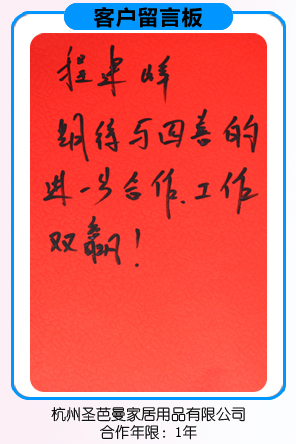 客户留言板
程建峰
期待与四善的
进一步合作.工作
双赢!
杭州圣芭曼家居用品有限公司
合作年限：1年